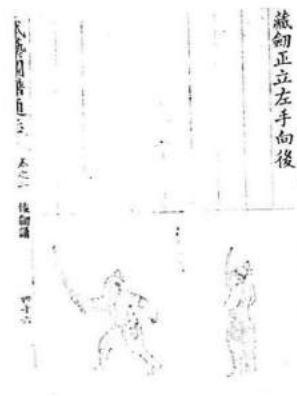 藏劒正立左手向後
武藝圖譜通志
卷之一
倭劒譜
四十六